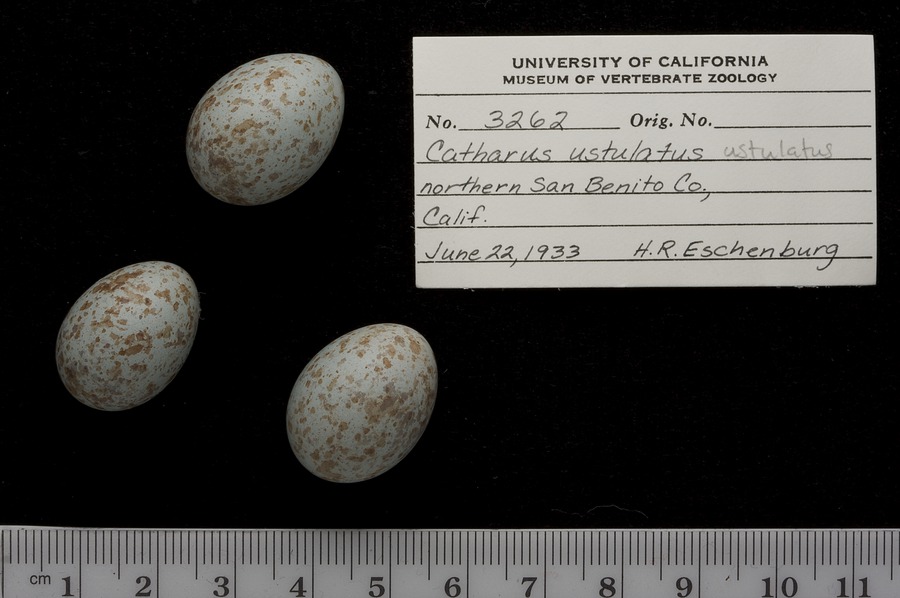 UNIVERSITY OF CALIFORNIA
MUSEUM OF VERTEBRATE ZOOLOGY
No. 3262 Orig. No.
Catharus ustulatus ustulatus
northern San Benito Co.,
Calif.
June 22, 1933 H.R. Eschenburg
cm 1 2 3 4 5 6 7 8 9 10 11